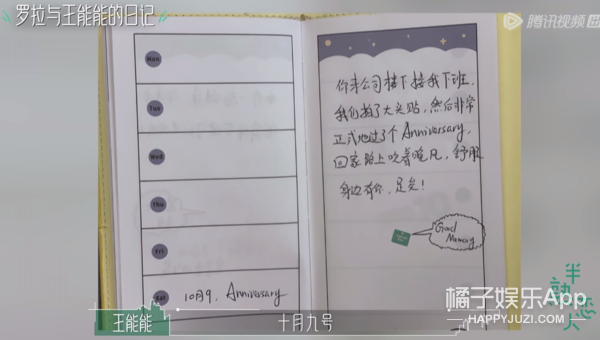 罗拉与王能能的日记
腾讯视频
Mon
Tue
Wed
Thu
Fri
Sat
10月9, Anniversary
你来公司楼下接我下班,
我们拍了大头贴,然后非常
正式地过了个 Anniversary,
回家路上吹着晚风,舒服
身边有你,足矣!
Good
Memory
半熟恋人
王能能
十月九号
橘子娱乐App
HAPPYJUZI.COM